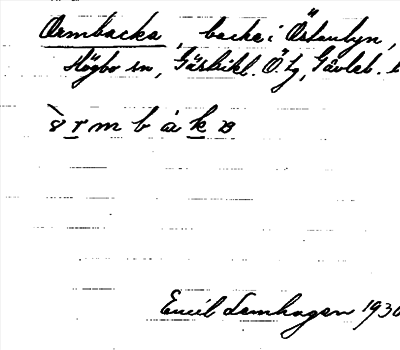 Ormbacka, backe i Östanbyn,
Högbo sn, Gästrikl. Ö. tg, Gävleb. l
òrmbákа
Emil Lenhagen 1930